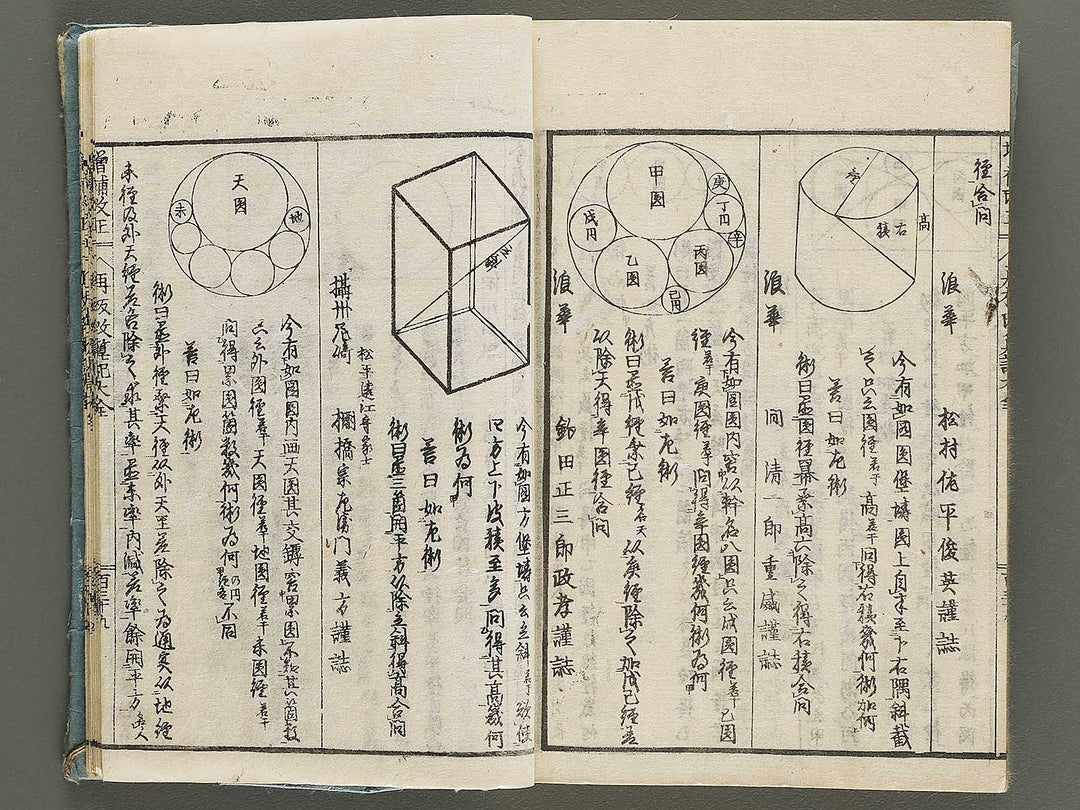 径合問
浪華 松村佐平俊英謹誌
高
右積
今有如図圓堡壔圓上自至下右隅斜截
之只云圓径若干高若干問得右積幾何術如何
答曰如左術
術曰置圓径冪乗高六除之得右積合問
浪華 間清一郎重威謹誌
甲圓
庚
丁円
辛
戊円
丙圓
乙圓
己円
今有如圖圓内容以幹名八圓只云戊圓径若干乙圓
径若干庚圓径若干問得辛圓径幾何術為何
答曰如左術
術曰置戊径乗己径名天以庚径除之加戊己径差
以除天得辛圓径合問
浪華 釦田正三郎政孝謹誌
立斜
今有如圖方堡壔只云立斜若干欲使
四方上下皮積至多問得其高幾何
術為何
答曰如左術
術曰置三箇開平方以除立斜得高合問
攝州尼崎 松平遠江守家士 棚橋宗左衛門義方謹誌
天圓
地
未
今有如圖圓内画天圓其交罅容累圓不知其箇数
只云外圓径若干天圓径若干地圓径若干末圓径若干
問得累圓箇数幾何術為何
答曰如左術
術曰置外径乗天径以外天差除之為通実以地径
末径及外天径差各除之求其率置末率内減差率餘開平方
増補改正
再板改算記大全
百三十九